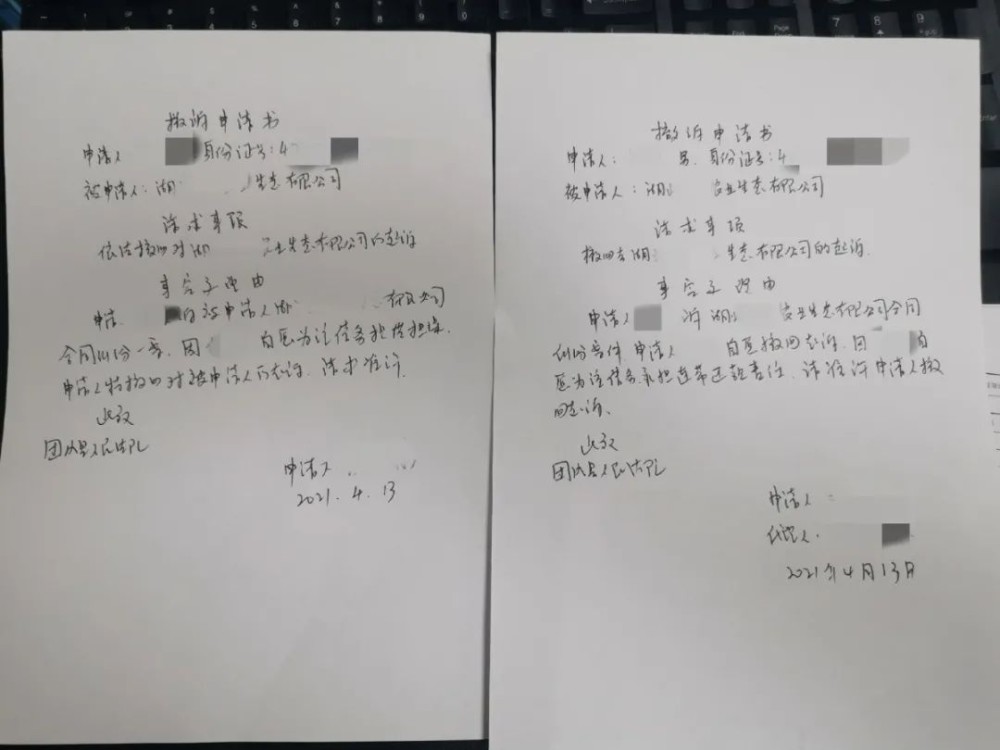 撤诉申请书
申请人 身份证号:4
被申请人:湖 生态有限公司
请求事项
依法撤回对湖 农业生态有限公司的起诉
事实与理由
申请 被申请人湖 有限公司
合同纠纷一案,因 自愿为该债务提供担保,
申请人特撤回对被申请人的起诉,请求准许
此致
团风县人民法院
申请人
2021.4.13
撤诉申请书
申请人: 男,身份证号:4
被申请人:湖 农业生态有限公司
请求事项
撤回对湖 生态有限公司的起诉.
事实与理由
申请人 诉湖 农业生态有限公司合同
纠纷案件,申请人 自愿撤回起诉.因 自
愿为该债务承担连带还款责任,请准许申请人撤
回起诉.
此致
团风县人民法院
申请人:
代理人.
2021年4月13日